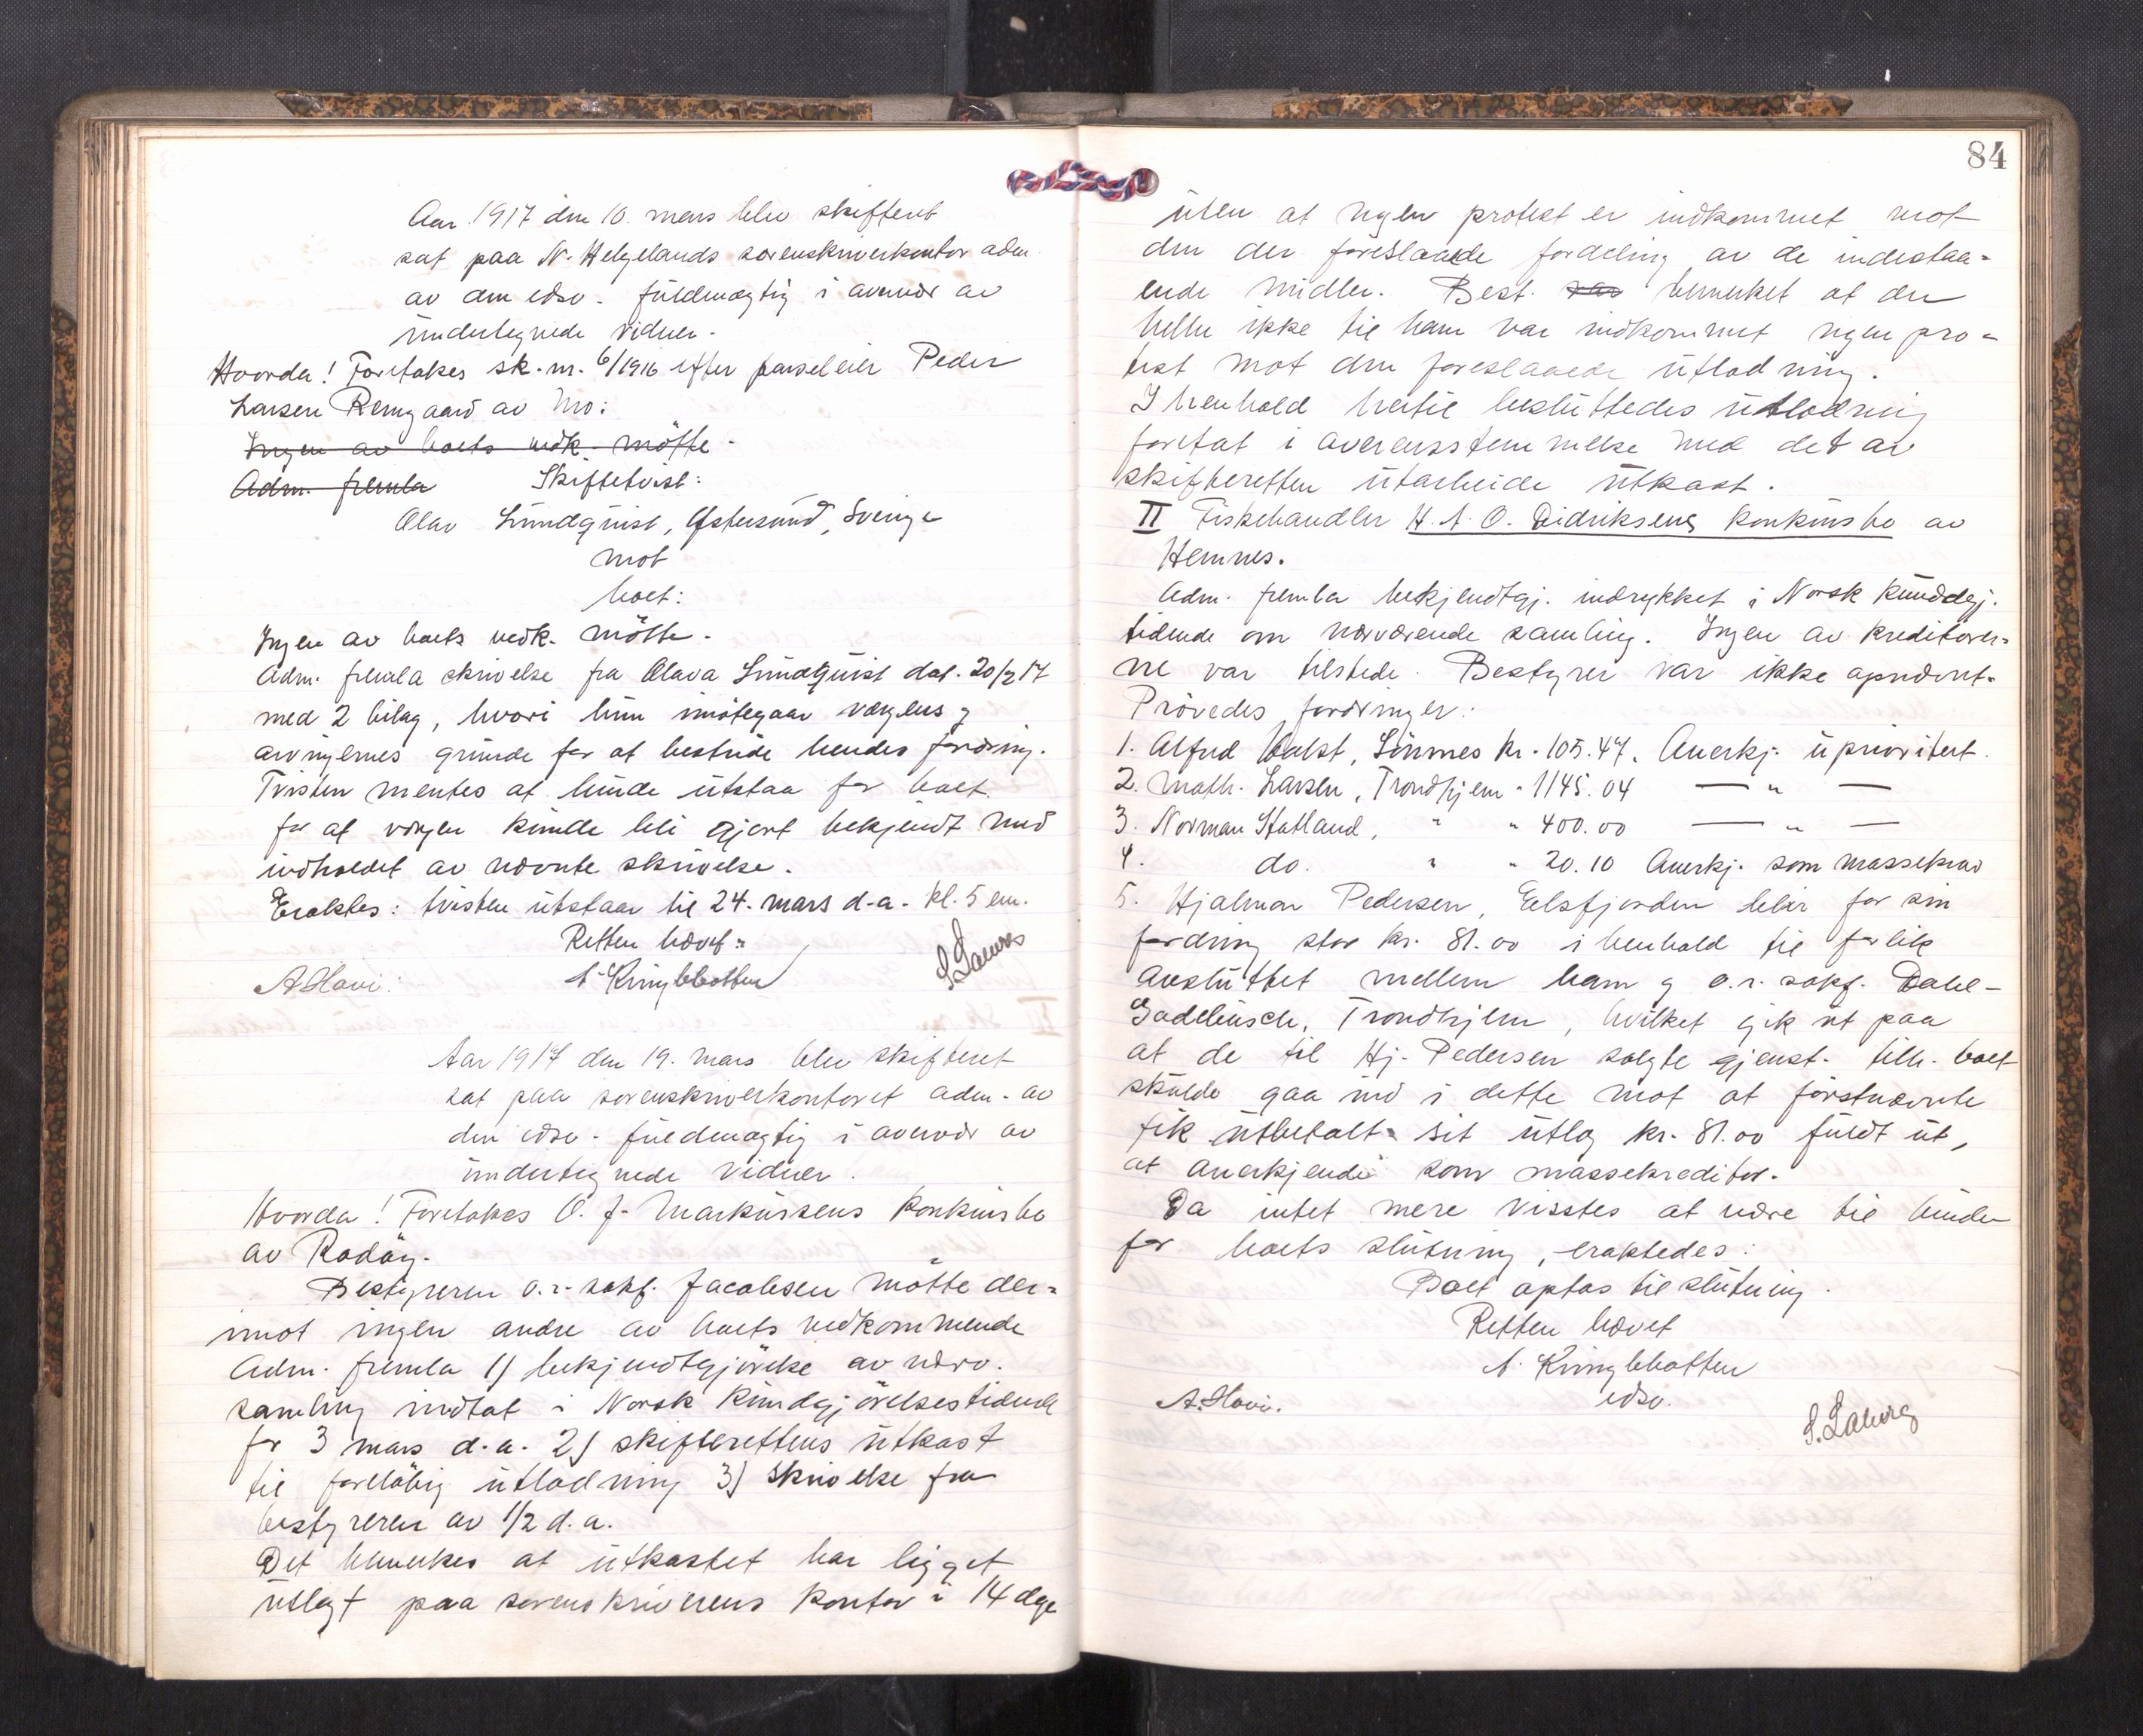 Aar 1917 den 10. mars blev skifteret
sat paa N. Helgelands sorenskriverkontor adm.
av den edsv. fuldmægtig i overvær av
undertegnede vidner.
Hvorda! Foretokes sk. nr. 6/1916 efter parseleier Peder
Larsen Remgaard av Mo:
Ingen av boets vedk. møtte.
Adm. fremla Skiftetvist:
Olav Lundquist, Østersund, Sverige
mot
boet:
Ingen av boets vedk. møtte.
Adm. fremla skrivelse fra Olava Lundquist dat. 20/2 17
med 2 bilag, hvori hun imøtegaar vergens og
arvingernes grunde for at bestride hendes fordring.
Tvisten mentes at burde utstaa for boet
for at vergen kunde bli gjort bekjendt med
indholdet av nævnte skrivelse.
Eraktes: tvisten utstaar til 24. mars d.a. kl. 5 em.
Retten hævet:
A Havi: N Kringlebotten S. Laberg
Aar 1917 den 19. mars blev skifteret
sat paa sorenskriverkontoret adm. av
den edsv. fuldmægtig i overvær av
undertegnede vidner.
Hvorda! Foretokes O. J. Markussens konkursbo
av Rødøy.
Bestyreren o.r. sakf. Jacobsen møtte der=
imot ingen andre av boets vedkommende
Adm. fremla 1) bekjendtgjørelse av nærv.
samling indtat i Norsk Kundgjørelsestidende
for 3 mars d.a. 2) skifterettens utkast
til foreløbig utlodning 3) skrivelse fra
bestyreren av 1/2 d.a.
Det bemerkes at utkastet har ligget
utlagt paa sorenskriverens kontor i 14 dage
84
uten at nogen protest er indkommet mot
den der foreslaaede fordeling av de indestaa=
ende midler. Best. har bemerket at der
heller ikke til ham var indkommet nogen pro=
test mot den foreslaaede utlodning.
I henhold hertil besluttedes utlodning
foretat i overensstemmelse med det av
skifteretten utarbeide utkast.
II Fiskehandler H. A. O. Didriksens konkursbo av
Hemnes.
Adm. fremla bekjendtgj. indrykket i Norsk Kundgj.
tidende om nærværende samling. Ingen av kreditorer=
ne var tilstede. Bestyrer var ikke opnævnt.
Prøvedes fordringer:
1. Alfred Kvalst, Sörnes kr. 105.47. Anerkj. uprioritert.
2. Math. Larsen, Trondhjem " 1145.04 — " —
3. Norman Hatland, " " 400.00 — " —
4. do. " " 20.10 Anerkj. som massekrav
5. Hjalmar Pedersen, Elsfjorden blir for sin
fordring stor kr. 81.00 i henhold til forlik
avsluttet mellem ham og o.r. sakf. Dahl-
Gadebusch, Trondhjem, hvilket gik ut paa
at de til Hj. Pedersen solgte gjenst. tilh. boet
skulde gaa ind i dette mot at førstnævnte
fik utbetalt sit utlæg kr. 81.00 fuldt ut,
at anerkjende som massekreditor.
Da intet mere visstes at være til hinder
for boets slutning, eraktedes:
Boet optas til slutning.
Retten hævet
N. Kringlebotten
edsv.
A. Havi. S. Laberg